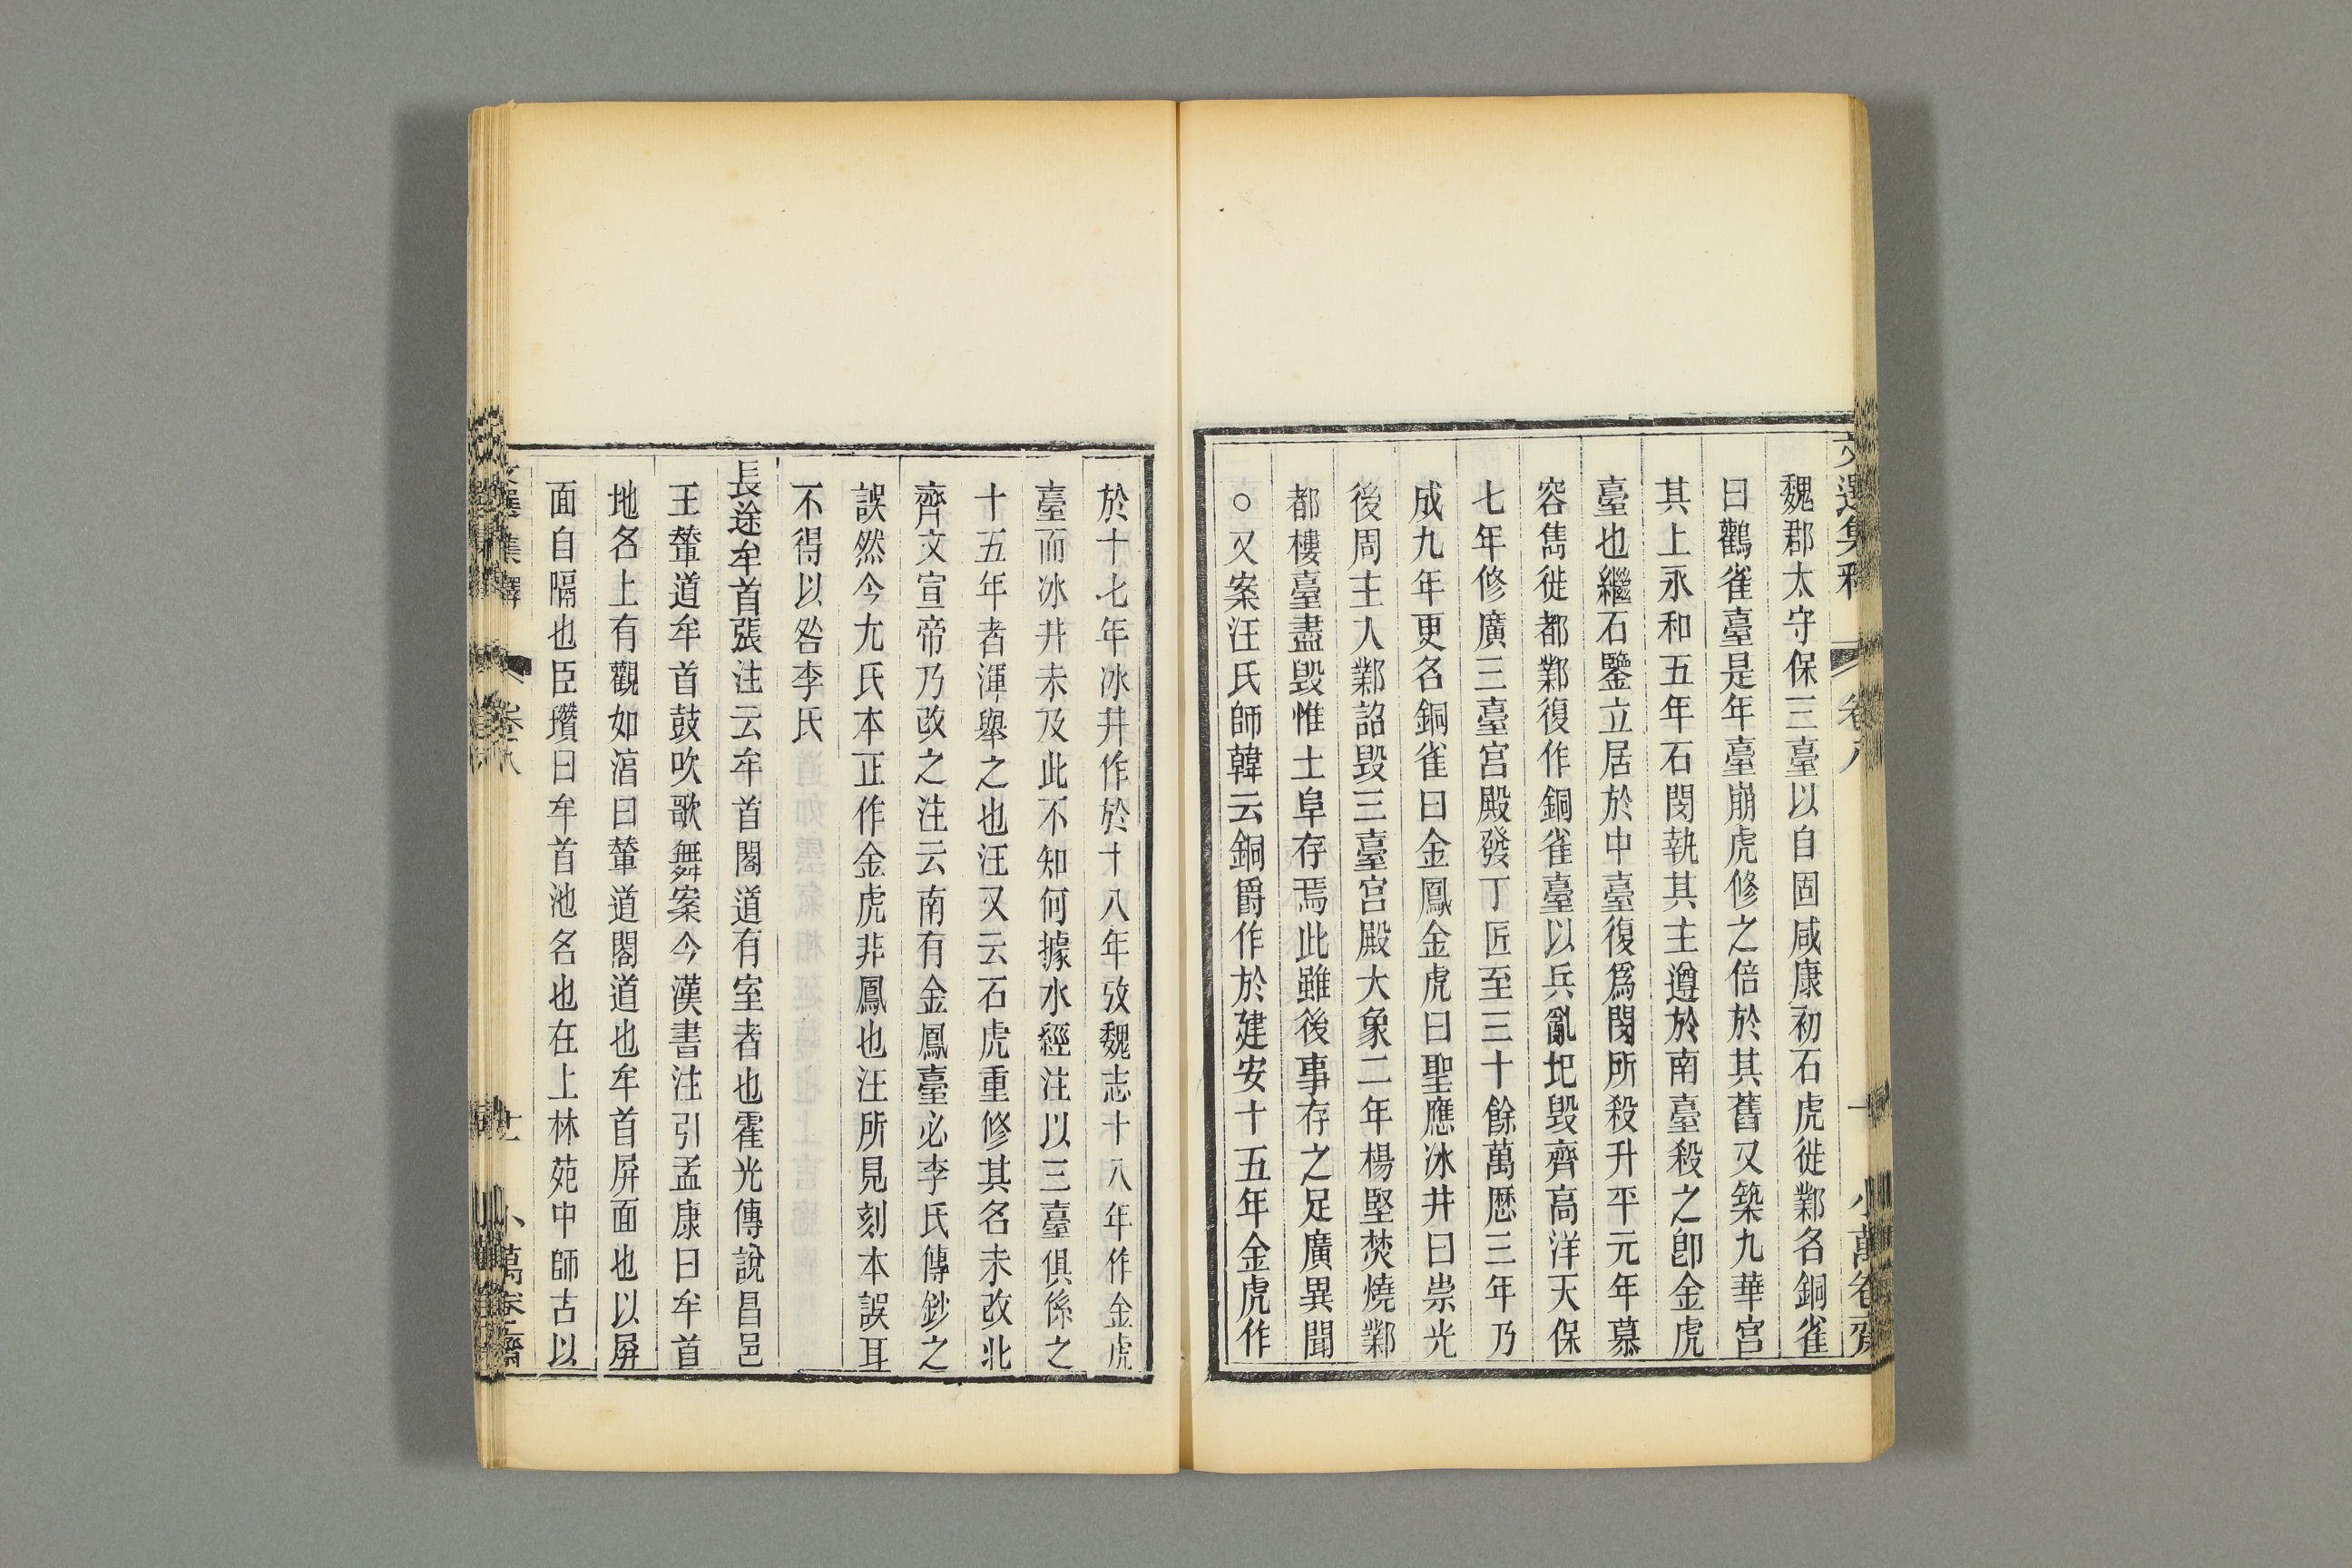 魏郡太守保三臺以自固咸康初石虎徙鄴名銅雀
曰鸛雀臺是年臺崩虎修之倍於其舊又築九華宮
其上永和五年石閔執其主遵於南臺殺之卽金虎
臺也繼石鑒立居於中臺復爲閔所殺升平元年慕
容雋徙都鄴復作銅雀臺以兵亂圯毀齊高洋天保
七年修廣三臺宮殿發丁匠至三十餘萬歷三年乃
成九年更名銅雀曰金鳳金虎曰聖應冰井曰崇光
後周主入鄴詔毀三臺宮殿大象二年楊堅焚燒鄴
都樓臺盡毀惟土阜存焉此雖後事存之足廣異聞
○又案汪氏師韓云銅爵作於建安十五年金虎作
於十七年冰井作於十八年攷魏志十八年作金虎
臺而冰井未及此不知何據水經注以三臺俱係之
十五年者渾舉之也汪又云石虎重修其名未改北
齊文宣帝乃改之注云南有金鳳臺必李氏傳鈔之
誤然今尤氏本正作金虎非鳳也汪所見刻本誤耳
不得以咎李氏
長途牟首張注云牟首閣道有室者也霍光傳說昌邑
王輦道牟首鼓吹歌舞案今漢書注引孟康曰牟首
地名上有觀如淳曰輦道閣道也牟首屏面也以屏
面自隔也臣瓚曰牟首池名也在上林苑中師古以
文選集釋
卷八
小萬卷齋